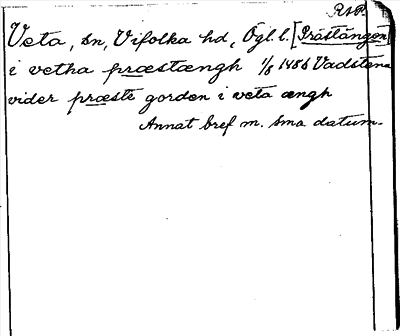 RAP.
Veta, sn, Vifolka hd, Ögl. l. [Prästängen]
i vetha præstængh 1/8 1486 Vadstena
vider præste gorden i veta ængh
Annat bref m. sma datum.